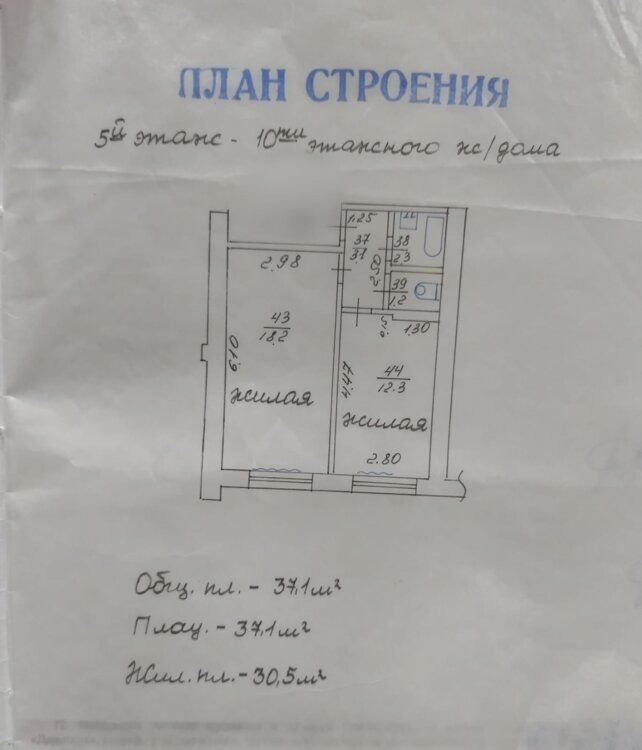 ПЛАН СТРОЕНИЯ
5й этаж - 10ти этажного ж/дома
1.25
37
3.1
2.50
38
2.3
39
1.2
2.98
43
18.2
6.10
жилая
1.30
44
12.3
4.44
жилая
2.80
Общ. пл. - 37,1м²
Площ. - 37,1м²
Жил. пл. - 30,5м²